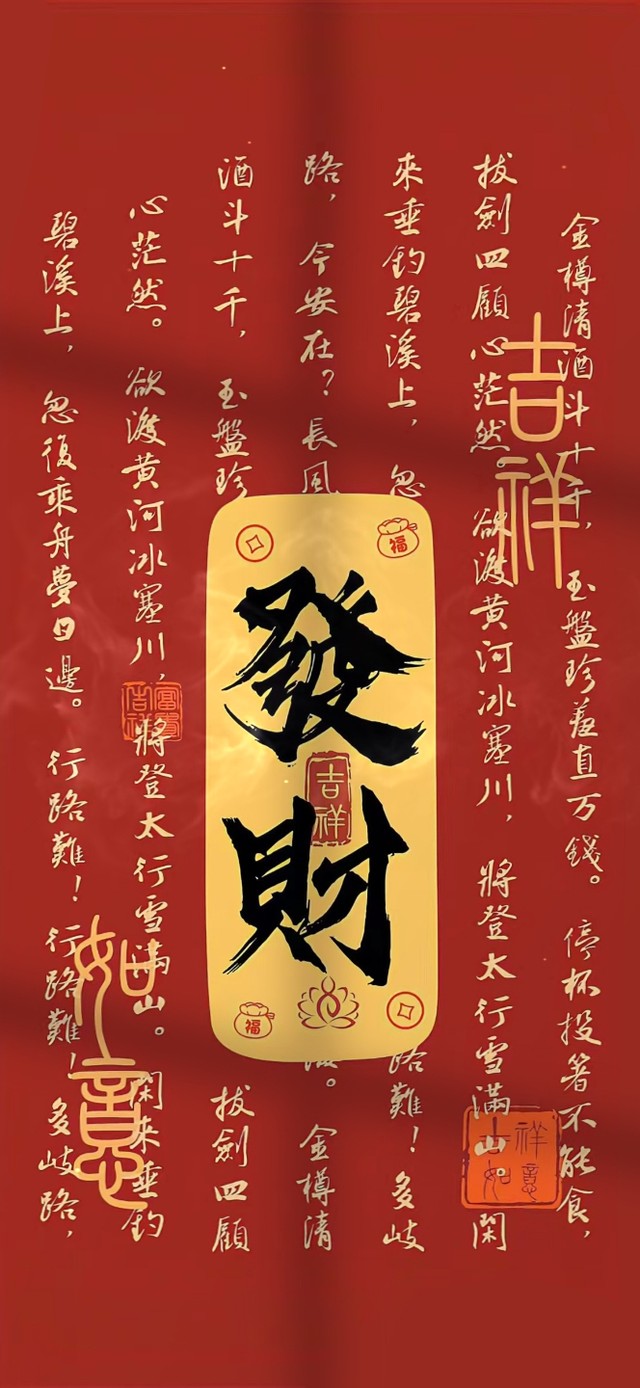 金樽清酒斗十千，玉盤珍羞直万錢。停杯投箸不能食，
拔劍四顧心茫然。欲渡黄河冰塞川，將登太行雪滿山。閑
來垂釣碧溪上，忽
路難！多岐
路，今安在？長風
海。金樽清
酒斗十千，玉盤珍
拔劍四顧
心茫然。欲渡黄河冰塞川，將登太行雪滿山。閑來垂釣
碧溪上，忽復乘舟夢日邊。行路難！行路難！多岐路，
吉祥
如意
發財
吉祥
福
福
富貴
吉祥
祥意
吉如